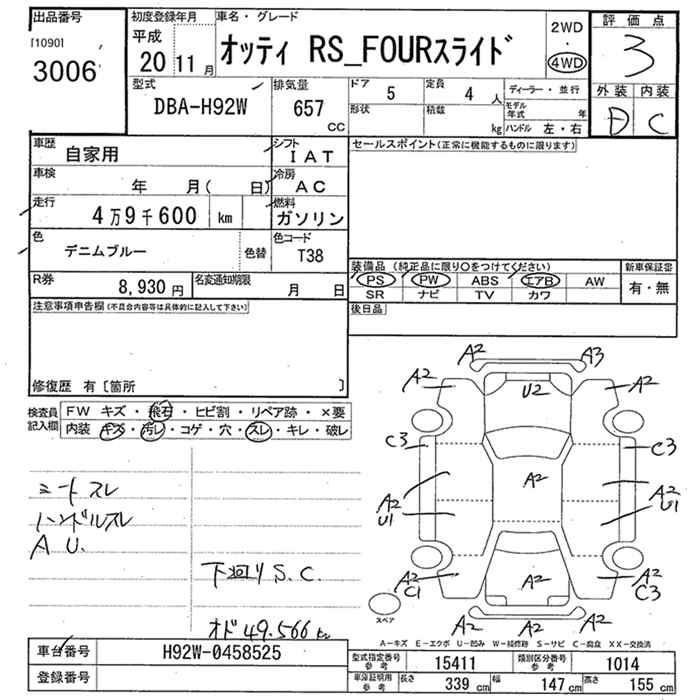 出品番号
[1090]
3006
初度登録年月
平成
20 11月
車名・グレード
オッティ RS_FOURスライド
2WD
・
4WD
評価点
3
外装 内装
D C
型式
DBA-H92W
排気量
657
CC
ドア 5
定員 4 人
形状
積載 kg
ディーラー・並行
モデル年式 年
ハンドル 左・右
車歴
自家用
シフト
IAT
車検
年 月( 日)
冷房
AC
走行
4万9千600 km
燃料
ガソリン
色
デニムブルー
色替
色コード
T38
R券
8,930円
名変通知期限
月 日
セールスポイント(正常に機能するものに限ります)
装備品 (純正品に限り○をつけてください)
PS PW ABS エアB AW
SR ナビ TV カワ
新車保証書
有・無
後日品
注意事項申告欄(不具合内容等は具体的に記入して下さい)
修復歴 有〔箇所 〕
検査員記入欄
FW キズ・飛石・ヒビ割・リペア跡・×要
内装 キズ・汚レ・コゲ・穴・スレ・キレ・破レ
シートスレ
ハンドルスレ
A U.
下廻りS.C.
オド49.566km
A2 A3
A2 U2 A2
C3 C3
A2 A2 A2
U1 U1
A2 A2 A2
C1 C3
A2 A2
スペア
A-キズ E-エクボ U-凹み W-補修跡 S-サビ C-腐食 XX-交換済
車台番号
H92W-0458525
登録番号
型式指定番号
参考
15411
類別区分番号
参考
1014
車庫証明用
参考
長さ 339cm
幅 147cm
高さ 155cm